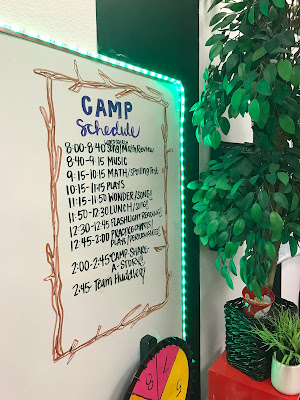 CAMP
Schedule
8:00-8:40 Sing! Math Review
8:40-9:15 MUSIC
9:15-10:15 MATH/Spelling Test
10:15-11:15 PLAYS
11:15-11:50 WONDER/SONG!
11:50-12:30 LUNCH/SING!
12:30-12:45 FLASHLIGHT READING!
12:45-2:00 PRACTICE CHANTS/
PLAYS/PERFORMANCES!
2:00-2:45 CAMP SHARE-
A-STORY!
2:45- Team Huddle!